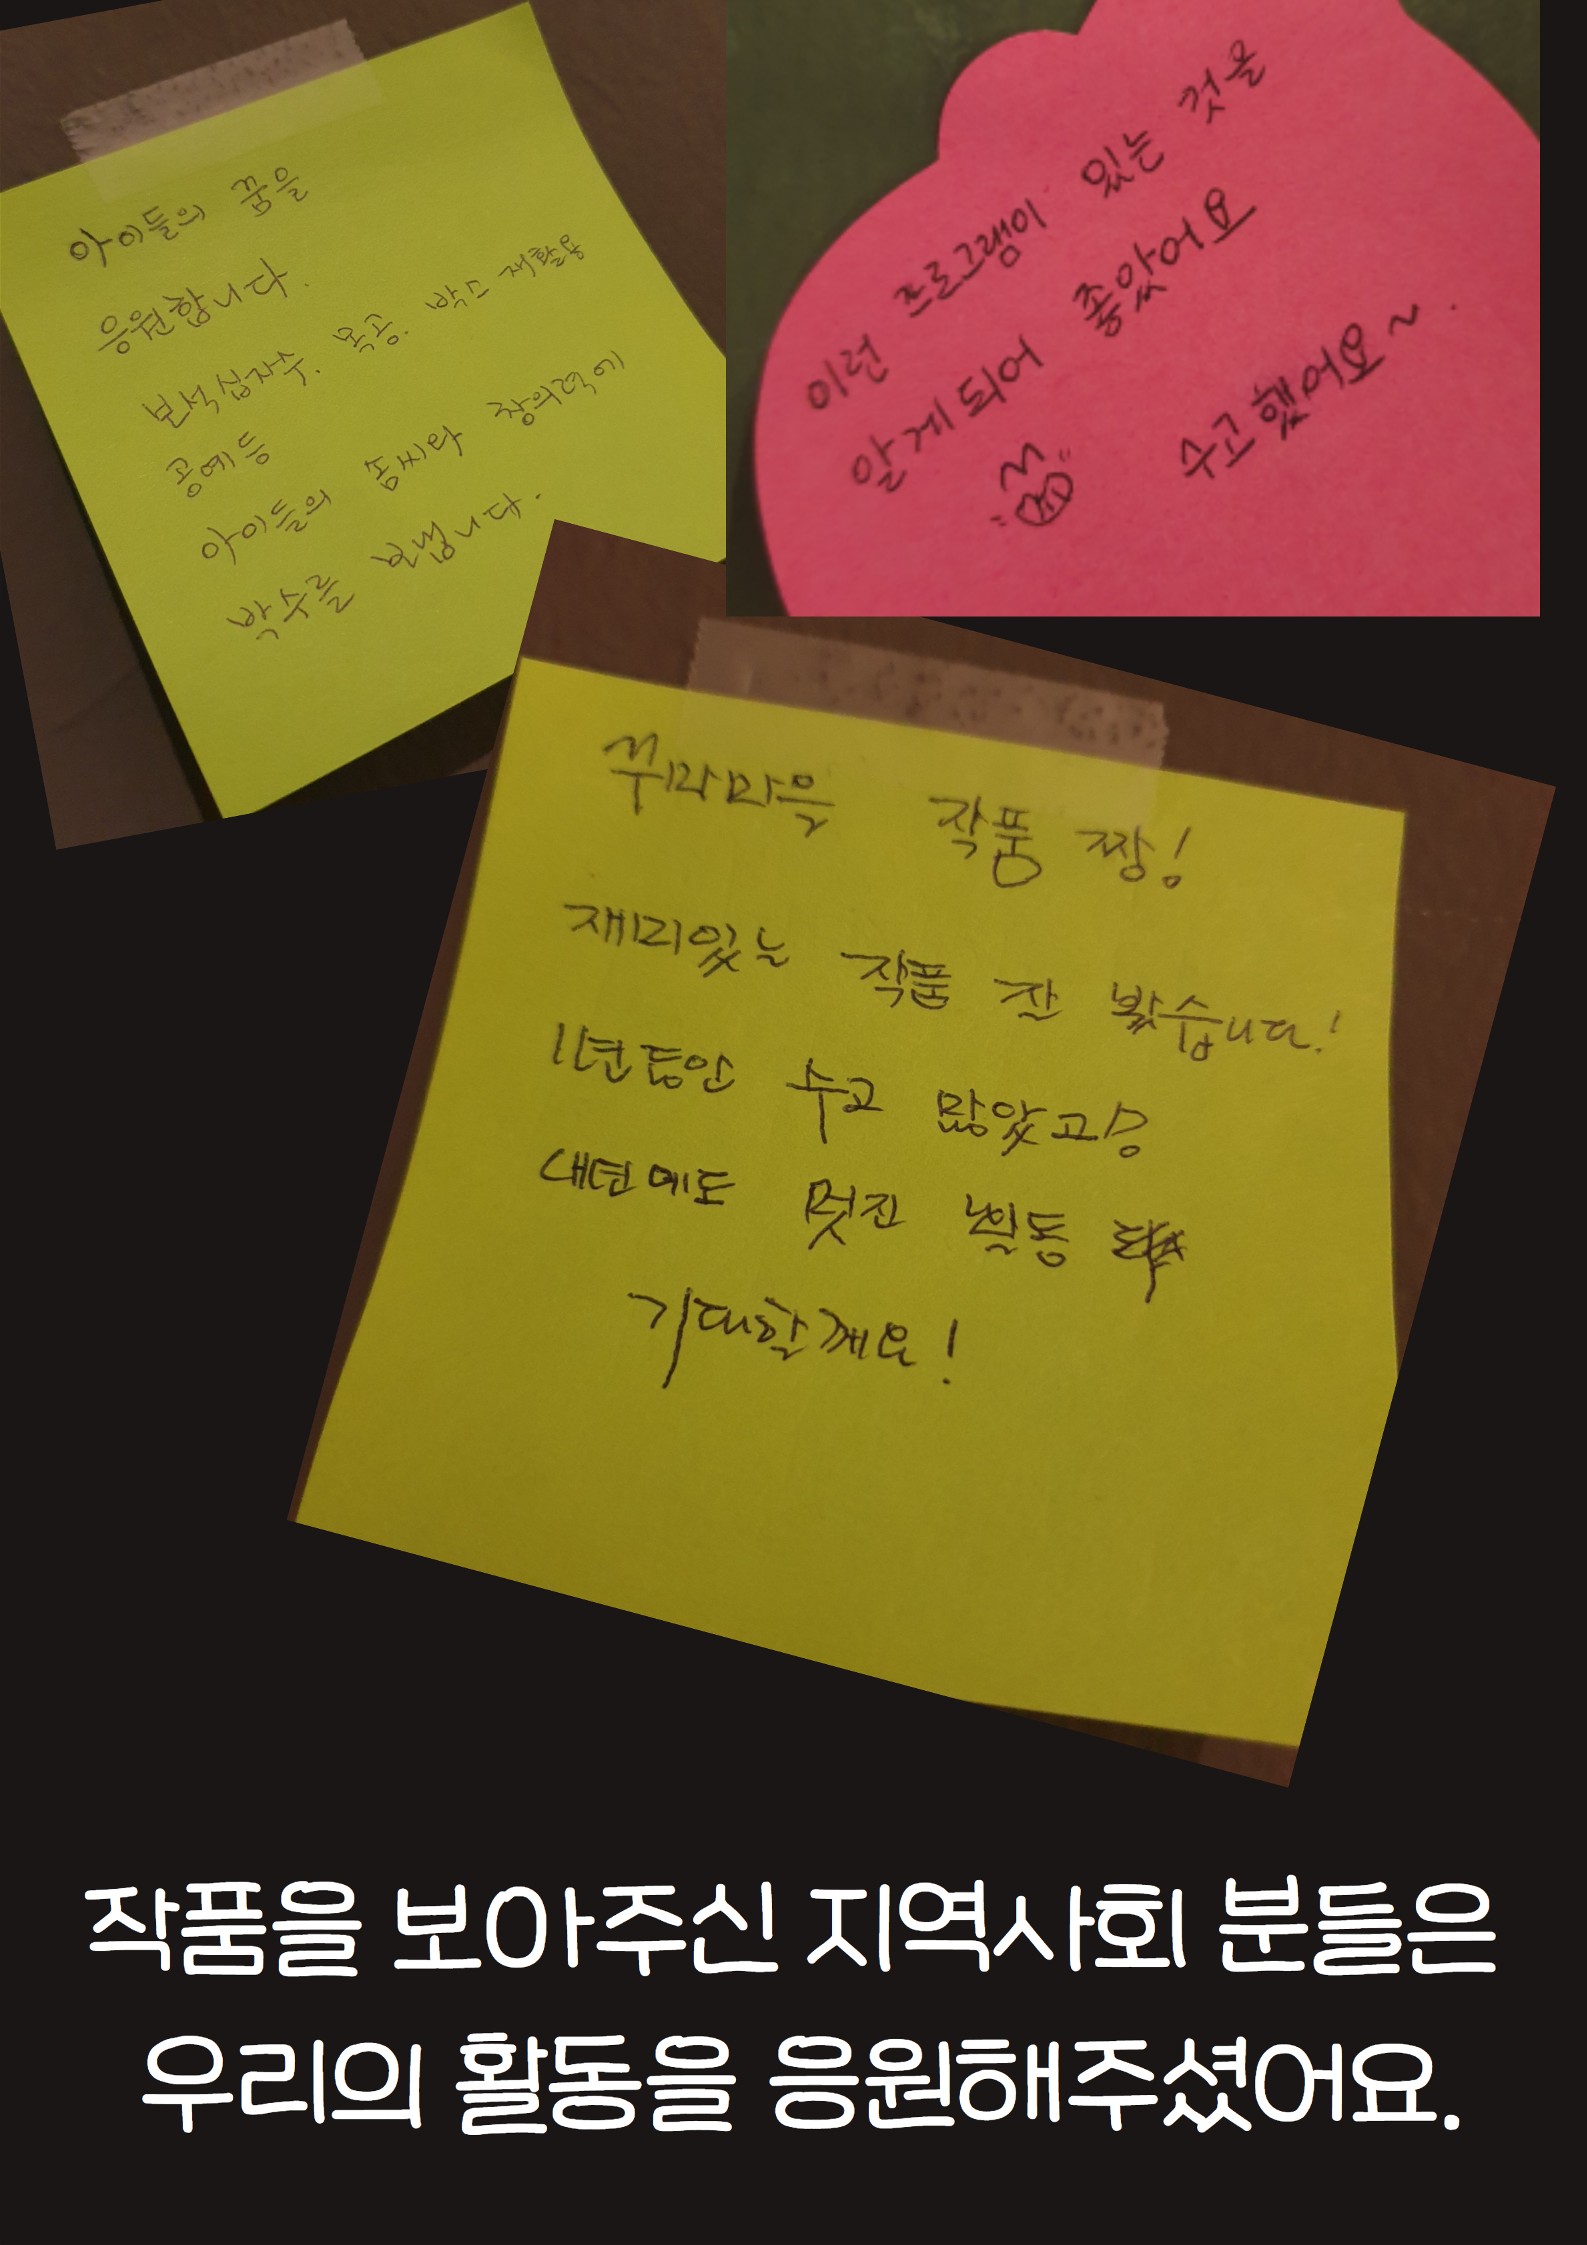 아이들의 꿈을
응원합니다.
보석십자수. 목공. 박스 재활용
공예등
아이들의 솜씨와 창의력에
박수를 보냅니다.
이런 프로그램이 있는 것을
알게되어 좋았어요
수고했어요~.
작품 짱!
재미있는 작품 잘 봤습니다!
11년동안 수고 많았고
내년에도 멋진 활동
기대할께요!
작품을 보아주신 지역사회 분들은
우리의 활동을 응원해주셨어요.